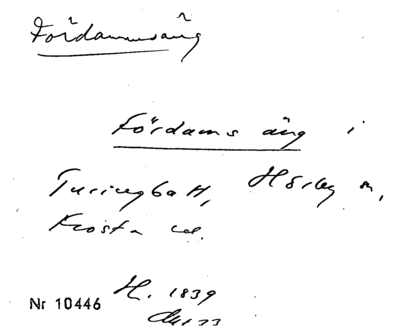 Fördammsäng
Fördams äng i
Turingbatt, Hörby sn,
Frosta hd.
H. 1839
Nr 10446